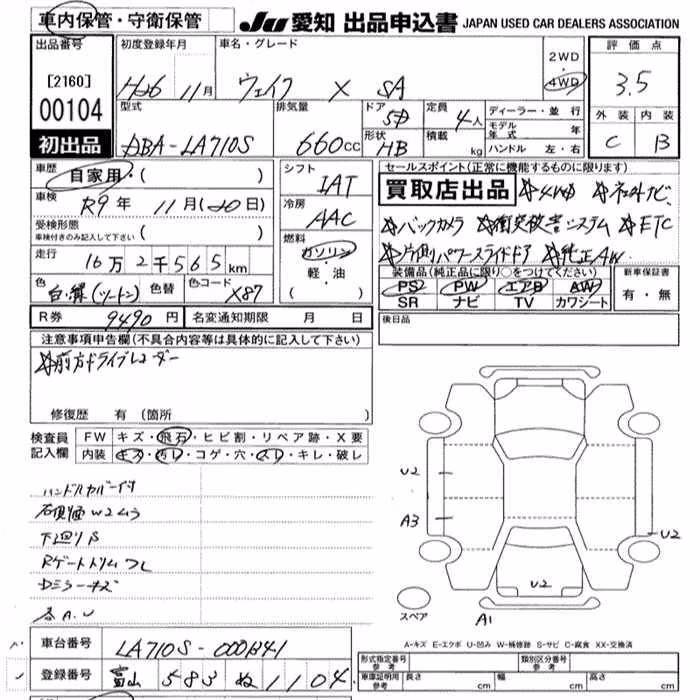 車内保管・守衛保管
JU 愛知 出品申込書 JAPAN USED CAR DEALERS ASSOCIATION
出品番号
[2160]
00104
初出品
初度登録年月
H26 11月
車名・グレード
ウェイク X SA
2WD
・
4WD
評価点
3.5
外装 内装
C B
型式
DBA-LA710S
排気量
660cc
ドア
5D
形状
HB
定員
4人
積載
kg
ディーラー・並行
モデル年式 年
ハンドル 左・右
車歴
自家用・( )
車検
R9年 11月(20日)
受検形態
車検付きのみ記入して下さい ( )
走行
16万2千565km
色
白・緑(ツートン)
色替
色コード
X87
シフト
IAT
冷房
AAC
燃料
ガソリン
・
軽・油
( )
R券 9490円
名変通知期限 月 日
セールスポイント(正常に機能するものに限ります)
買取店出品 ☆4WD ☆社外ナビ
☆バックカメラ ☆衝突被害システム ☆ETC
☆片側パワースライドドア ☆純正AW
装備品(純正品に限り○をつけてください)
PS PW エアB AW
SR ナビ TV カワシート
新車保証書
有・無
後日品
注意事項申告欄(不具合内容等は具体的に記入して下さい)
☆前方ドライブレコーダー
修復歴 有 (箇所 )
検査員記入欄
FW キズ・飛石・ヒビ割・リペア跡・X要
内装 キズ・汚レ・コゲ・穴・スレ・キレ・破レ
ハンドルカバー付
下廻りS
Rゲートトリムスレ
Dミラーキズ
各A.U
U2
A3
U2
U2
A1
スペア
A-キズ E-エクボ U-凹み W-補修跡 S-サビ C-腐食 XX-交換済
車台番号 LA710S-0001341
登録番号 富山 583 ぬ 1104
形式指定番号参考
類別区分番号参考
車庫証明用参考 長さ cm 幅 cm 高さ cm